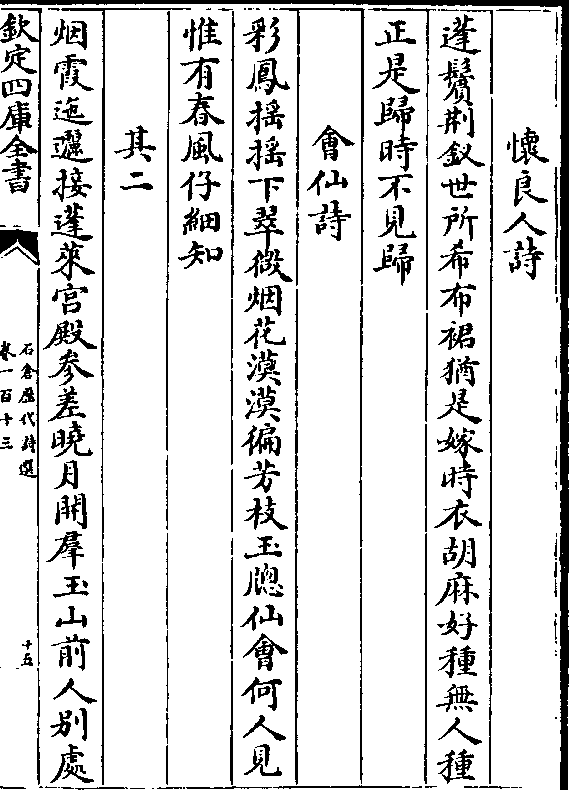 懷良人詩
蓬鬢荆釵世所希布裙猶是嫁時衣胡麻好種無人種
正是歸時不見歸
會仙詩
彩鳳摇摇下翠微烟花漠漠徧芳枝玉牕仙會何人見
惟有春風仔細知
其二
烟霞迤邐接蓬萊宫殿参差曉月開羣玉山前人别處
欽定四庫全書
石倉歷代詩選
卷一百十三
十五